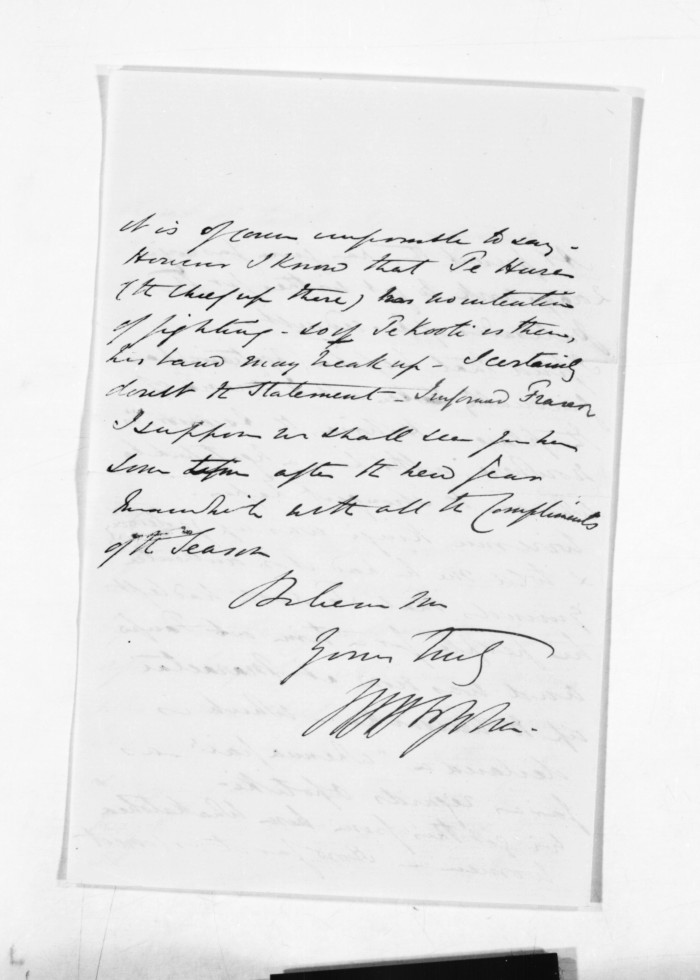 it is of course impossible to say -
However I know that Te Hura
(the Chief up there) has no intention
of fighting - so if Te Kooti is there,
his band may break up - I certainly
doubt the statement - I informed Fraser
I suppose we shall see you here
some time after the new year
Meanwhile with all the Compliments
of the Season
Believe me
Yours Truly